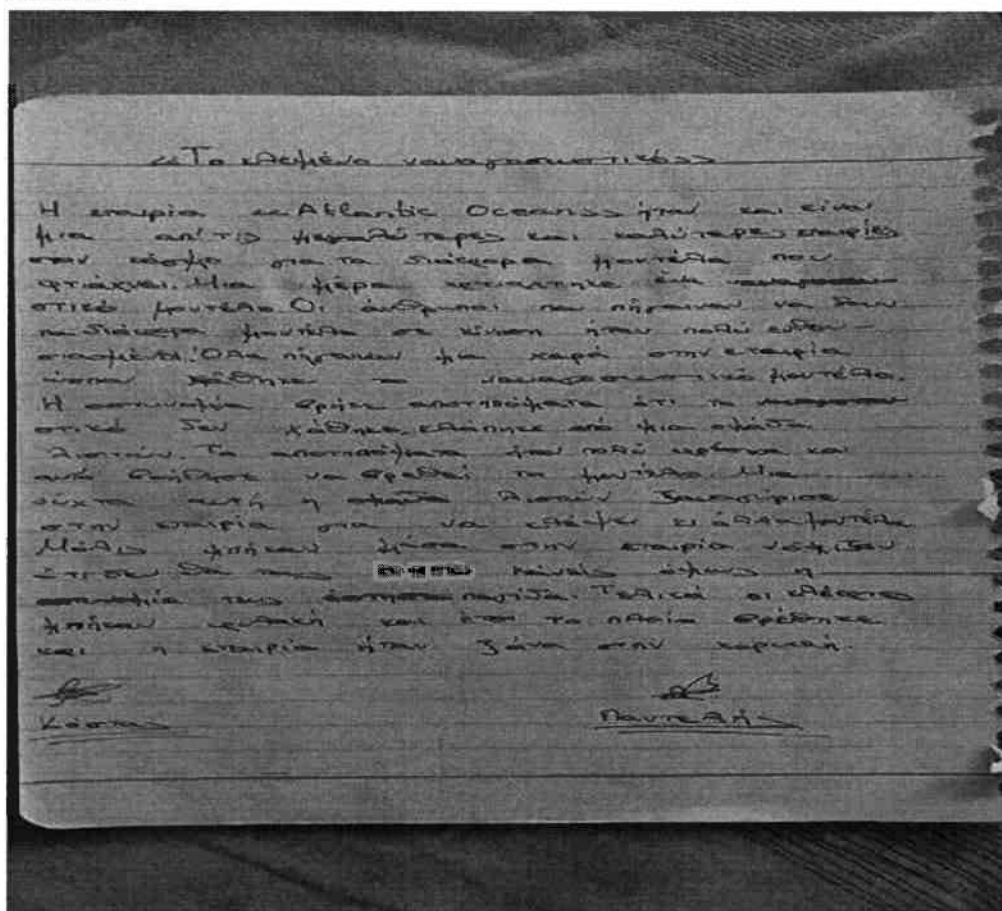 «Το κλεμμένο ναυαγοσωστικό»
Η εταιρία «Atlantic Ocean» ήταν και είναι
μια απ'τις μεγαλύτερες και καλύτερες εταιρίες
στον κόσμο για τα διάφορα μοντέλα που
φτιάχνει. Μια μέρα φτιάχτηκε ένα
στικό μοντέλο. Οι άνθρωποι που πήγαιναν να δουν
τα διάφορα μοντέλα σε κίνηση ήταν πολύ ενθου-
σιασμένοι. Όλα πήγαιναν μια χαρά στην εταιρία
ώσπου χάθηκε το ναυαγοσωστικό μοντέλο.
Η αστυνομία βρήκε αποτυπώματα ότι το
στικό δεν χάθηκε, κλάπηκε από μια ομάδα
ληστών. Τα αποτυπώματα ήταν πολύ φρέσκα και
αυτό βοήθησε να βρεθεί το μοντέλο. Μια
νύχτα αυτή η ομάδα ληστών ξαναγύρισε
στην εταιρία για να κλέψει κι άλλα μοντέλα.
Μόλις μπήκαν μέσα στην εταιρία νόμιζαν
ότι δεν θα τους κανείς όμως η
αστυνομία τους έστησε παγίδα. Τελικά οι κλέφτες
μπήκαν φυλακή και έτσι το πλοίο βρέθηκε
και η εταιρία ήταν ξανά στην κορυφή.
Κώστας Παντελής